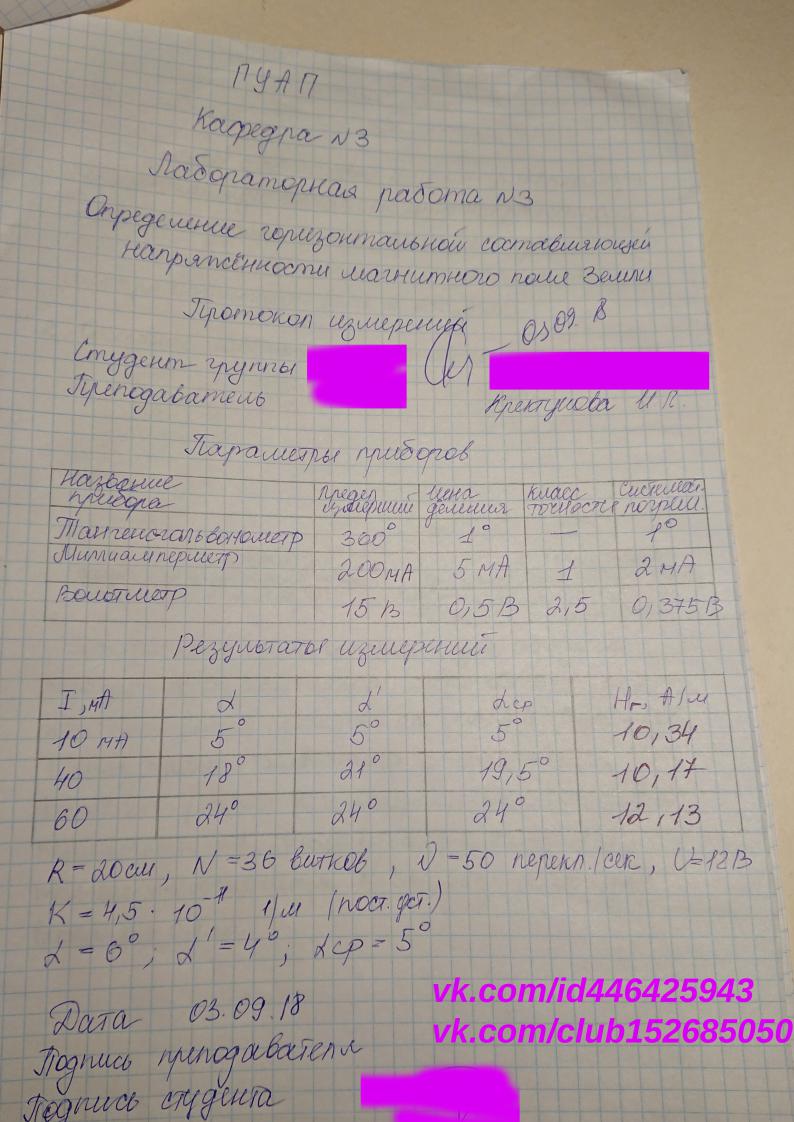 ГУАП
Кафедра №3
Лабораторная работа №3
Определение горизонтальной составляющей
напряжённости магнитного поля Земли
Протокол измерений
03.09.18
Студент группы
Преподаватель
Параметры приборов
Название прибора Предел измерений Цена деления Класс точности Системат. погреш.
Тангенсгальвонометр 360° 1° — 1°
Миллиамперметр 200мА 5 мА 1 2 мА
Вольтметр 15 В 0,5 В 2,5 0,375В
Результаты измерений
I, мА α α' αср Hг, А/м
10 мА 5° 5° 5° 10,34
40 18° 21° 19,5° 10,17
60 24° 24° 24° 12,13
R = 20см, N = 36 витков, ν = 50 перекл./сек, U=12В
K = 4,5 · 10⁻¹¹ 1/м (пост. уст.)
α = 6°; α' = 4°; αср = 5°
Дата 03.09.18
Подпись преподавателя
Подпись студента
vk.com/id446425943
vk.com/club152685050